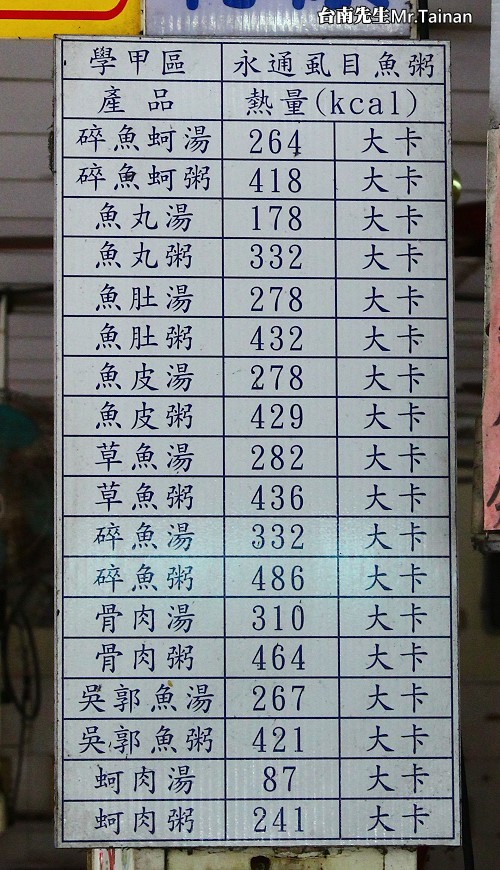 台南先生Mr.Tainan
學甲區 永通虱目魚粥
產品 熱量(kcal)
碎魚蚵湯 264 大卡
碎魚蚵粥 418 大卡
魚丸湯 178 大卡
魚丸粥 332 大卡
魚肚湯 278 大卡
魚肚粥 432 大卡
魚皮湯 278 大卡
魚皮粥 429 大卡
草魚湯 282 大卡
草魚粥 436 大卡
碎魚湯 332 大卡
碎魚粥 486 大卡
骨肉湯 310 大卡
骨肉粥 464 大卡
吳郭魚湯 267 大卡
吳郭魚粥 421 大卡
蚵肉湯 87 大卡
蚵肉粥 241 大卡